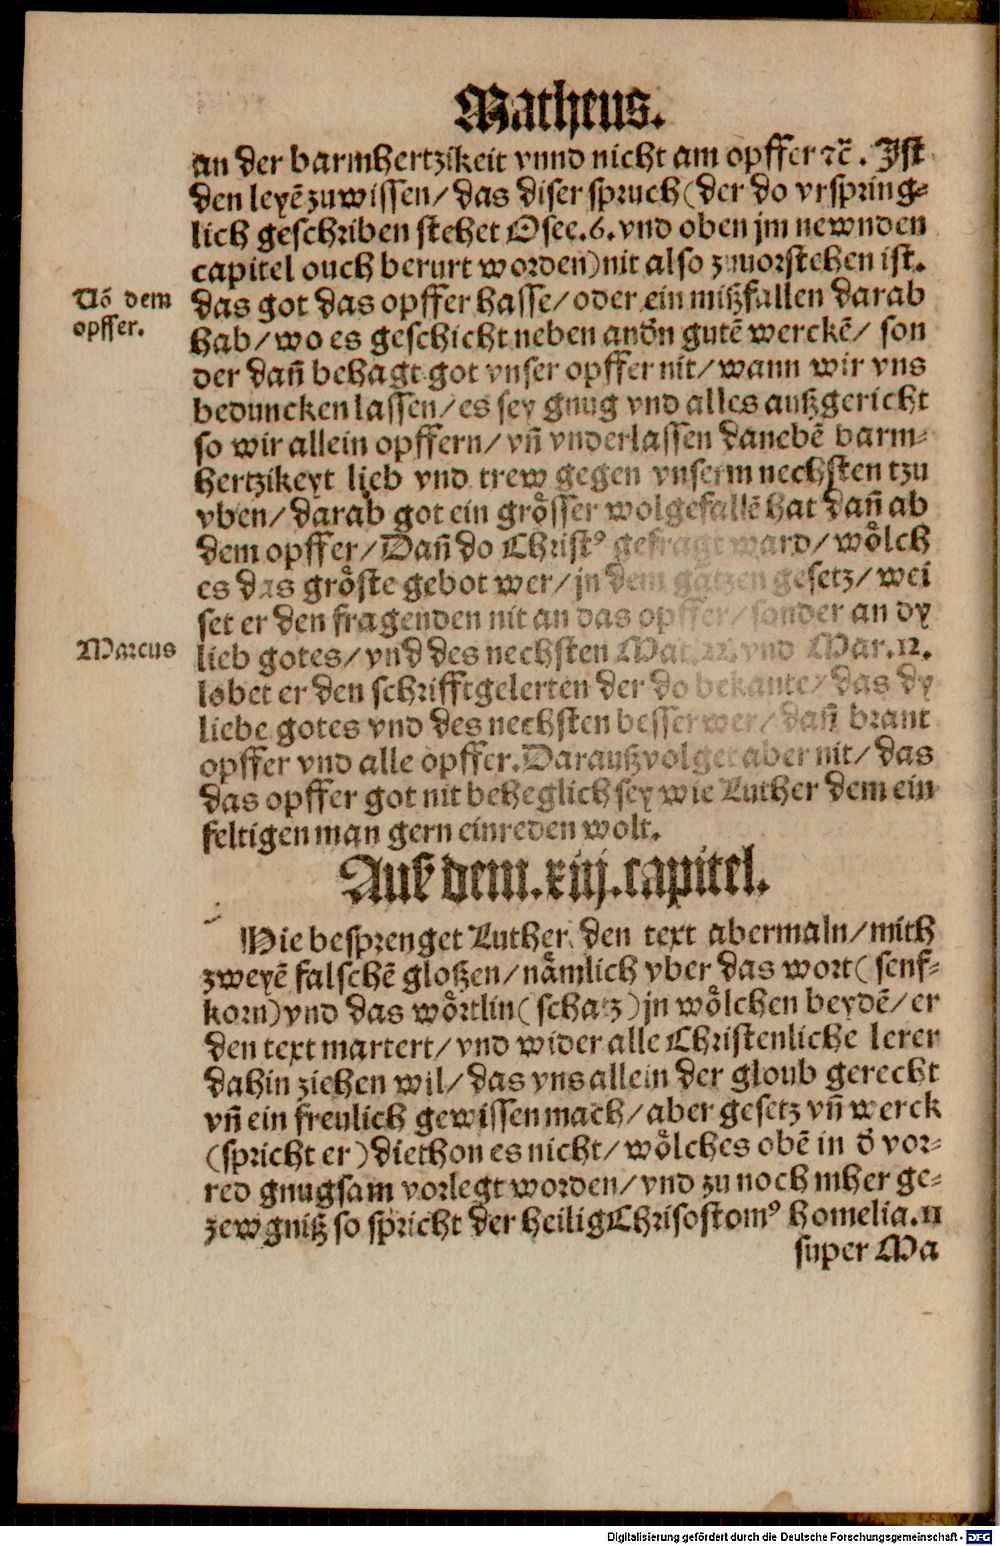 Matheus.
an der barmhertzikeit vnnd nicht am opffer ⁊c̃. Jst
den leyẽ zuwissen/ das diser spruch (der do vrspring⸗
lich geschriben stehet Osee.6. vnd oben jm newnden
capitel ouch berurt worden) nit also zuuorstehen ist.
Uõ dem
opffer.
das got das opffer hasse/ oder ein mißfallen darab
hab/ wo es geschicht neben andn̄ gutẽ werckẽ/ son
der dañ behagt got vnser opffer nit/ wann wir vns
beduncken lassen/ es sey gnug vnd alles außgericht
so wir allein opffern/ vñ vnderlassen danebẽ barm⸗
hertzikeyt lieb vnd trew gegen vnserm nechsten tzu
vben/ darab got ein grösser wolgefallẽ hat dañ ab
dem opffer/ Dañ do Christꝰ gefragt ward/ wölch
es das gröste gebot wer/ jn dem gãtzen gesetz/ wei
set er den fragenden nit an das opffer/ sonder an dy
Marcus
lieb gotes/ vnd des nechsten Mat. 22. vnd Mar.12.
lobet er den schrifftgelerten der do bekante/ das dy
liebe gotes vnd des nechsten besser wer/ dañ brant
opffer vnd alle opffer. Darauß volget aber nit/ das
das opffer got nit beheglich sey wie Luther dem ein
feltigen man gern einreden wolt.
Auß dem.xiij.capitel.
Hie besprenget Luther den text abermaln/ mith
zweyẽ falschẽ gloßen/ nämlich vber das wort (senf⸗
korn) vnd das wörtlin (schatz) jn wölchen beydẽ/ er
den text martert/ vnd wider alle Christenliche lerer
dahin ziehen wil/ das vns allein der gloub gerecht
vñ ein freulich gewissen mach/ aber gesetz vñ werck
(spricht er) diethon es nicht/ wölches obẽ in d̄ vor⸗
red gnugsam vorlegt worden/ vnd zu noch mher ge⸗
zewgniß so spricht der heilig Chrisostomꝰ homelia.11
super Ma
Digitalisierung gefördert durch die Deutsche Forschungsgemeinschaft - DFG